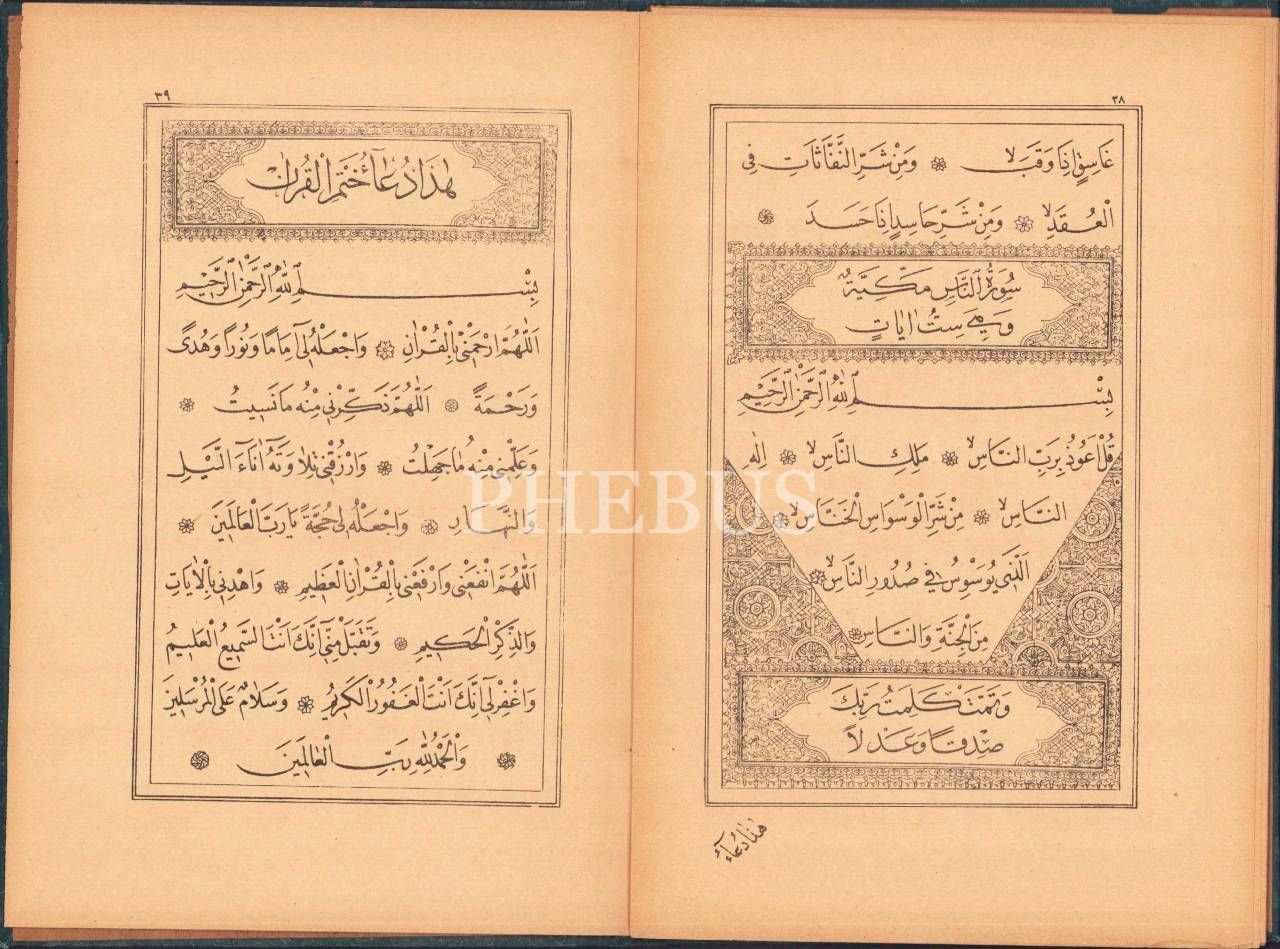 ٣٨
غَاسِقٍ اِذَا وَقَبَۙ وَمِنْ شَرِّ النَّفَّاثَاتِ فِى
الْعُقَدِۙ وَمِنْ شَرِّ حَاسِدٍ اِذَا حَسَدَ
سُورَةُ النَّاسِ مَكِّيَّةٌ
وَهِىَ سِتُّ اٰيَاتٍ
بِسْــــمِ اللّٰهِ الرَّحْمٰنِ الرَّحِيْمِ
قُلْ اَعُوذُ بِرَبِّ النَّاسِۙ مَلِكِ النَّاسِۙ اِلٰهِ
النَّاسِۙ مِنْ شَرِّ الْوَسْوَاسِ الْخَنَّاسِۙ
اَلَّذٖى يُوَسْوِسُ فٖى صُدُورِ النَّاسِۙ
مِنَ الْجِنَّةِ وَالنَّاسِ
وَتَمَّتْ كَلِمَتُ رَبِّكَ
صِدْقًا وَعَدْلًا
هٰذَا دُعَآءُ
٣٩
هٰذَا دُعَآءُ خَتْمِ الْقُرْاٰنِ
بِسْــــمِ اللّٰهِ الرَّحْمٰنِ الرَّحِيْمِ
اَللّٰهُمَّ ارْحَمْنٖى بِالْقُرْاٰنِ وَاجْعَلْهُ لٖٓى اِمَامًا وَنُورًا وَهُدًى
وَرَحْمَةً اَللّٰهُمَّ ذَكِّرْنٖى مِنْهُ مَا نَسٖيتُ
وَعَلِّمْنٖى مِنْهُ مَا جَهِلْتُ وَارْزُقْنٖى تِلَاوَتَهُٓ اٰنَآءَ الَّيْلِ
وَالنَّهَارِ وَاجْعَلْهُ لٖى حُجَّةً يَا رَبَّ الْعَالَمٖينَ
اَللّٰهُمَّ انْفَعْنٖى وَارْفَعْنٖى بِالْقُرْاٰنِ الْعَظٖيمِ وَاهْدِنٖى بِالْاٰيَاتِ
وَالذِّكْرِ الْحَكٖيمِ وَتَقَبَّلْ مِنّٖٓى اِنَّكَ اَنْتَ السَّمٖيعُ الْعَلٖيمُ
وَاغْفِرْ لٖٓى اِنَّكَ اَنْتَ الْغَفُورُ الْكَرٖيمُ وَسَلَامٌ عَلَى الْمُرْسَلٖينَ
وَالْحَمْدُ لِلّٰهِ رَبِّ الْعَالَمٖينَ
PHEBUS